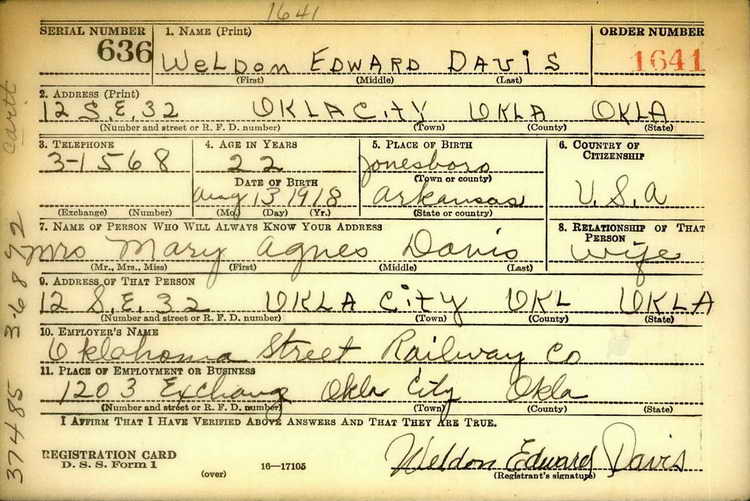 1641
SERIAL NUMBER 1. NAME (Print) ORDER NUMBER
636 WELDON EDWARD DAVIS 1641
(First) (Middle) (Last)
2. ADDRESS (Print)
12 S.E. 32 OKLA CITY OKLA OKLA
(Number and street or R. F. D. number) (Town) (County) (State)
3. TELEPHONE 4. AGE IN YEARS 5. PLACE OF BIRTH 6. COUNTRY OF CITIZENSHIP
3-1568 22 Jonesboro
(Town or county)
DATE OF BIRTH
Aug 13 1918 Arkansas U.S.A
(Exchange) (Number) (Mo.) (Day) (Yr.) (State or country)
7. NAME OF PERSON WHO WILL ALWAYS KNOW YOUR ADDRESS 8. RELATIONSHIP OF THAT PERSON
Mrs Mary Agnes Davis Wife
(Mr., Mrs., Miss) (First) (Middle) (Last)
9. ADDRESS OF THAT PERSON
12 S.E. 32 OKLA CITY OKL OKLA
(Number and street or R. F. D. number) (Town) (County) (State)
10. EMPLOYER'S NAME
Oklahoma Street Railway Co
11. PLACE OF EMPLOYMENT OR BUSINESS
1203 Exchang Okla City Okla
(Number and street or R. F. D. number) (Town) (County) (State)
I AFFIRM THAT I HAVE VERIFIED ABOVE ANSWERS AND THAT THEY ARE TRUE.
REGISTRATION CARD
D. S. S. Form 1 (over) 16—17105 Weldon Edward Davis
(Registrant's signature)
37485 3-6892